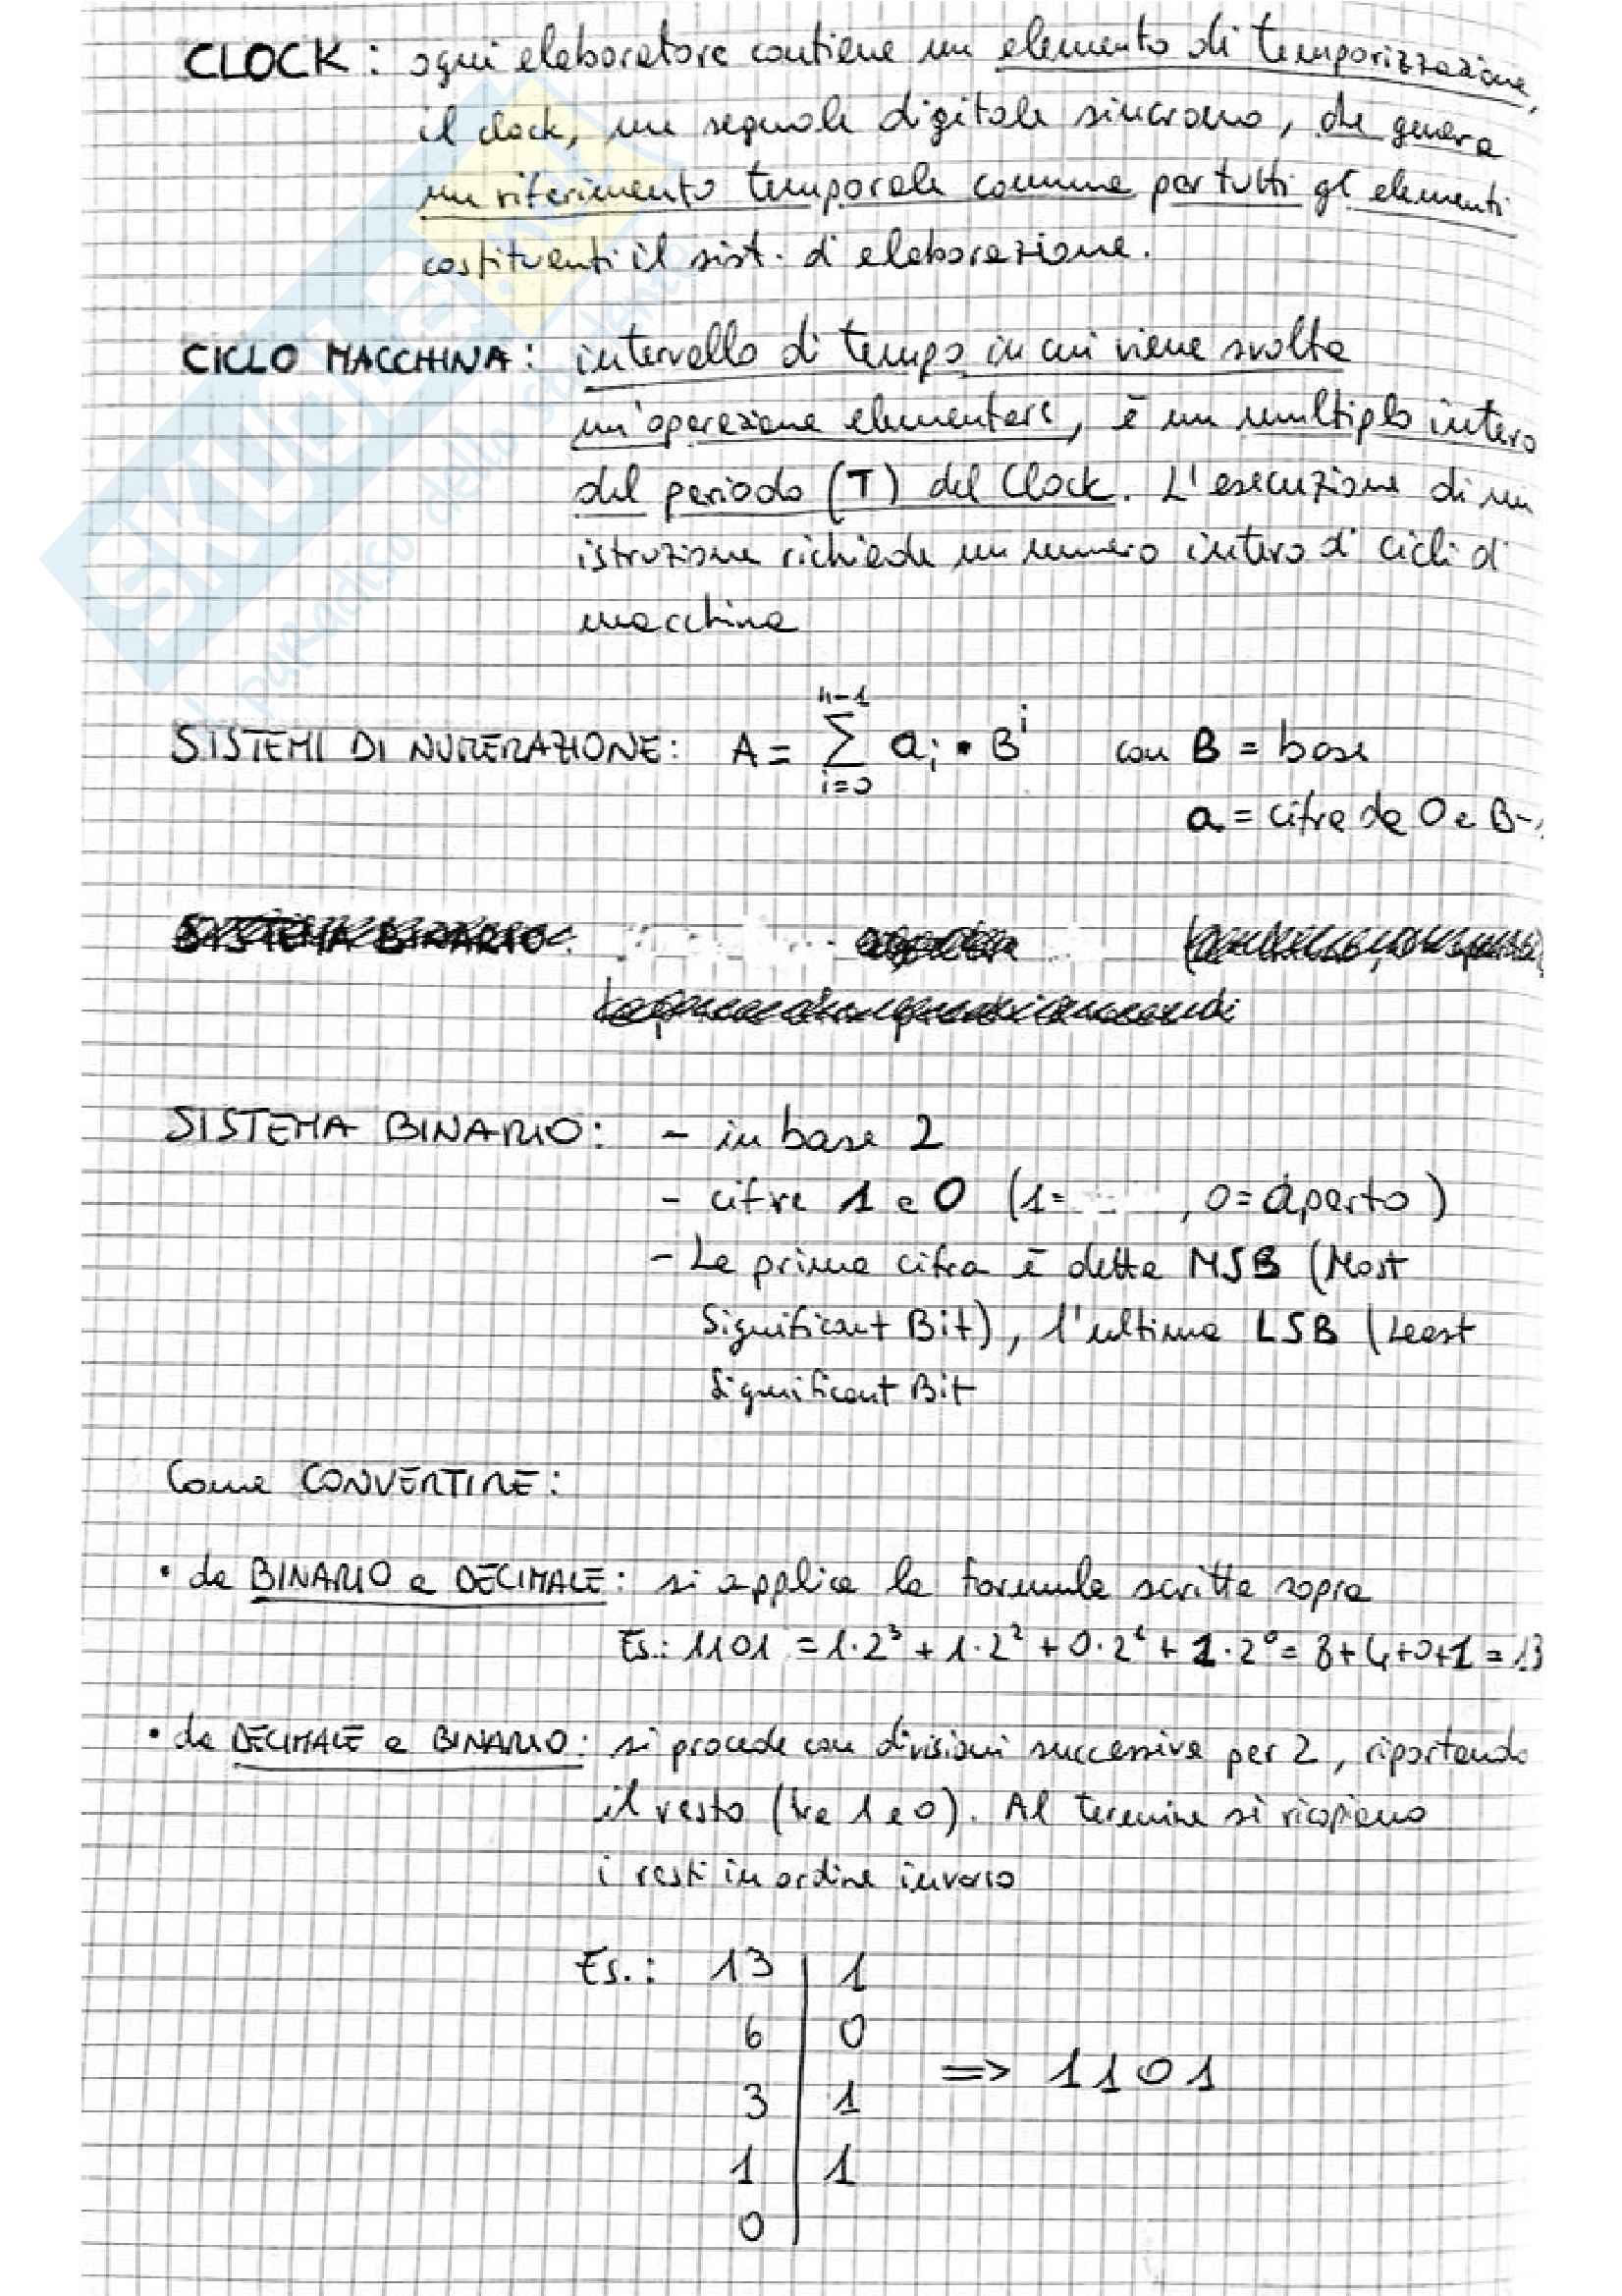 CLOCK : ogni elaboratore contiene un elemento di temporizzazione,
il clock, un segnale digitale sincrono, che genera
un riferimento temporale comune per tutti gl elementi
costituenti il sist. d' elaborazione.
CICLO MACCHINA : intervallo di tempo in cui viene svolta
un'operazione elementare, è un multiplo intero
del periodo (T) del Clock. L'esecuzione di un
istruzione richiede un numero intero di cicli d
macchina
SISTEMI DI NUMERAZIONE : A = ∑ (i=0, n-1) aᵢ • Bⁱ con B = base
a = cifra da 0 a B-1
SISTEMA BINARIO
SISTEMA BINARIO : - in base 2
- cifre 1 e 0 (1= , 0= aperto)
- La prima cifra è detta MSB (Most
Significant Bit), l'ultima LSB (Least
Significant Bit
Come CONVERTIRE :
• da BINARIO a DECIMALE : si applica la formula scritta sopra
Es.: 1101 = 1·2³ + 1·2² + 0·2¹ + 1·2⁰ = 8+4+0+1 = 13
• da DECIMALE a BINARIO : si procede con divisioni successive per 2, riportando
il resto (tra 1 e 0). Al termine si ricopiano
i resti in ordine inverso
Es.: 13 | 1
6 | 0
3 | 1
=> 1101
1 | 1
0 |
SKUOLA.net
il paradiso dello studente